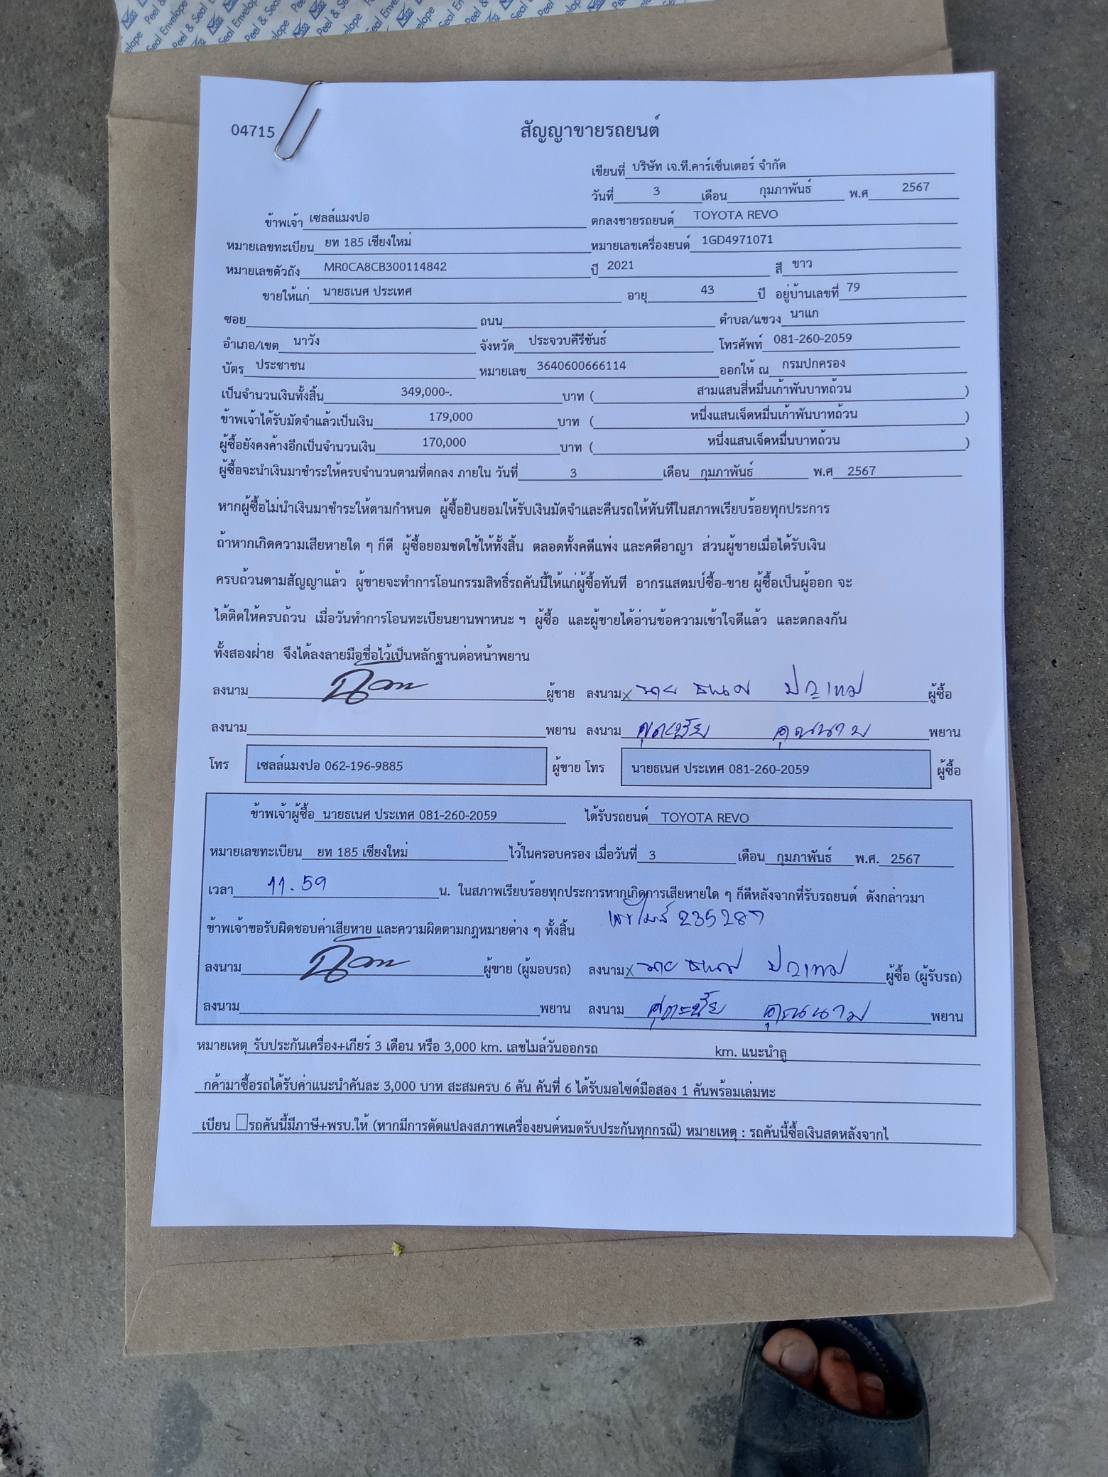 Peel & Seal Envelope
04715
สัญญาขายรถยนต์
เขียนที่ บริษัท เจ.ที.คาร์เซ็นเตอร์ จำกัด
วันที่ 3 เดือน กุมภาพันธ์ พ.ศ 2567
ข้าพเจ้า เซลล์แมงปอ ตกลงขายรถยนต์ TOYOTA REVO
หมายเลขทะเบียน ยท 185 เชียงใหม่ หมายเลขเครื่องยนต์ 1GD4971071
หมายเลขตัวถัง MR0CA8CB300114842 ปี 2021 สี ขาว
ขายให้แก่ นายธเนศ ประเทศ อายุ 43 ปี อยู่บ้านเลขที่ 79
ซอย ถนน ตำบล/แขวง นาแก
อำเภอ/เขต นาวัง จังหวัด ประจวบคีรีขันธ์ โทรศัพท์ 081-260-2059
บัตร ประชาชน หมายเลข 3640600666114 ออกให้ ณ กรมปกครอง
เป็นจำนวนเงินทั้งสิ้น 349,000-. บาท ( สามแสนสี่หมื่นเก้าพันบาทถ้วน )
ข้าพเจ้าได้รับมัดจำแล้วเป็นเงิน 179,000 บาท ( หนึ่งแสนเจ็ดหมื่นเก้าพันบาทถ้วน
ผู้ซื้อยังคงค้างอีกเป็นจำนวนเงิน 170,000 บาท ( หนึ่งแสนเจ็ดหมื่นบาทถ้วน )
ผู้ซื้อจะนำเงินมาชำระให้ครบจำนวนตามที่ตกลง ภายใน วันที่ 3 เดือน กุมภาพันธ์ พ.ศ 2567
หากผู้ซื้อไม่นำเงินมาชำระให้ตามกำหนด ผู้ซื้อยินยอมให้รับเงินมัดจำและคืนรถให้ทันทีในสภาพเรียบร้อยทุกประการ
ถ้าหากเกิดความเสียหายใด ๆ ก็ดี ผู้ซื้อยอมชดใช้ให้ทั้งสิ้น ตลอดทั้งคดีแพ่ง และคดีอาญา ส่วนผู้ขายเมื่อได้รับเงิน
ครบถ้วนตามสัญญาแล้ว ผู้ขายจะทำการโอนกรรมสิทธิ์รถคันนี้ให้แก่ผู้ซื้อทันที อากรแสตมป์ซื้อ-ขาย ผู้ซื้อเป็นผู้ออก จะ
ได้ติดให้ครบถ้วน เมื่อวันทำการโอนทะเบียนยานพาหนะ ฯ ผู้ซื้อ และผู้ขายได้อ่านข้อความเข้าใจดีแล้ว และตกลงกัน
ทั้งสองฝ่าย จึงได้ลงลายมือชื่อไว้เป็นหลักฐานต่อหน้าพยาน
ลงนาม ผู้ขาย ลงนาม x นาย ธเนศ ประเทศ ผู้ซื้อ
ลงนาม พยาน ลงนาม คุณนาม พยาน
โทร เซลล์แมงปอ 062-196-9885 ผู้ขาย โทร นายธเนศ ประเทศ 081-260-2059 ผู้ซื้อ
ข้าพเจ้าผู้ซื้อ นายธเนศ ประเทศ 081-260-2059 ได้รับรถยนต์ TOYOTA REVO
หมายเลขทะเบียน ยท 185 เชียงใหม่ ไว้ในครอบครอง เมื่อวันที่ 3 เดือน กุมภาพันธ์ พ.ศ. 2567
เวลา 11.59 น. ในสภาพเรียบร้อยทุกประการหากเกิดการเสียหายใด ๆ ก็ดีหลังจากที่รับรถยนต์ ดังกล่าวมา
ข้าพเจ้าขอรับผิดชอบค่าเสียหาย และความผิดตามกฎหมายต่าง ๆ ทั้งสิ้น เลขไมล์ 235287
ลงนาม ผู้ขาย (ผู้มอบรถ) ลงนาม x นาย ธเนศ ประเทศ ผู้ซื้อ (ผู้รับรถ)
ลงนาม พยาน ลงนาม คุณนาม พยาน
หมายเหตุ รับประกันเครื่อง+เกียร์ 3 เดือน หรือ 3,000 km. เลขไมล์วันออกรถ km. แนะนำลู
กค้ามาซื้อรถได้รับค่าแนะนำคันละ 3,000 บาท สะสมครบ 6 คัน คันที่ 6 ได้รับมอไซต์มือสอง 1 คันพร้อมเล่มทะ
เบียน □รถคันนี้มีภาษี+พรบ.ให้ (หากมีการดัดแปลงสภาพเครื่องยนต์หมดรับประกันทุกกรณี) หมายเหตุ : รถคันนี้ซื้อเงินสดหลังจากไ